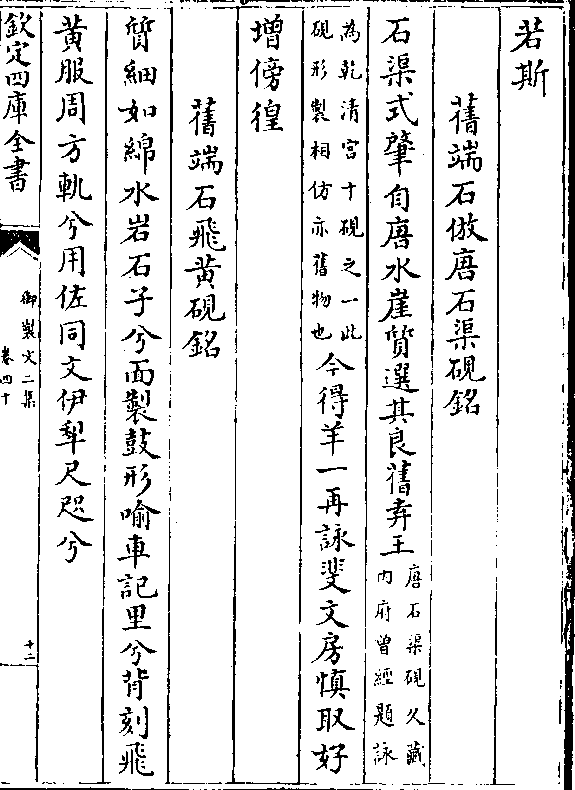 若斯
舊端石倣唐石渠硯銘
石渠式肇自唐水崖質選其良舊弆王唐石渠硯久藏
内府曾經題詠
為乾清宫十硯之一此
硯形製相仿亦舊物也今得羊一再詠斐文房慎取好
增傍徨
舊端石飛黄硯銘
質細如綿水岩石子兮面製鼓形喻車記里兮背刻飛
黄服周方軌兮用佐同文伊犁尺咫兮
欽定四庫全書
御製文二集
卷四十
十二